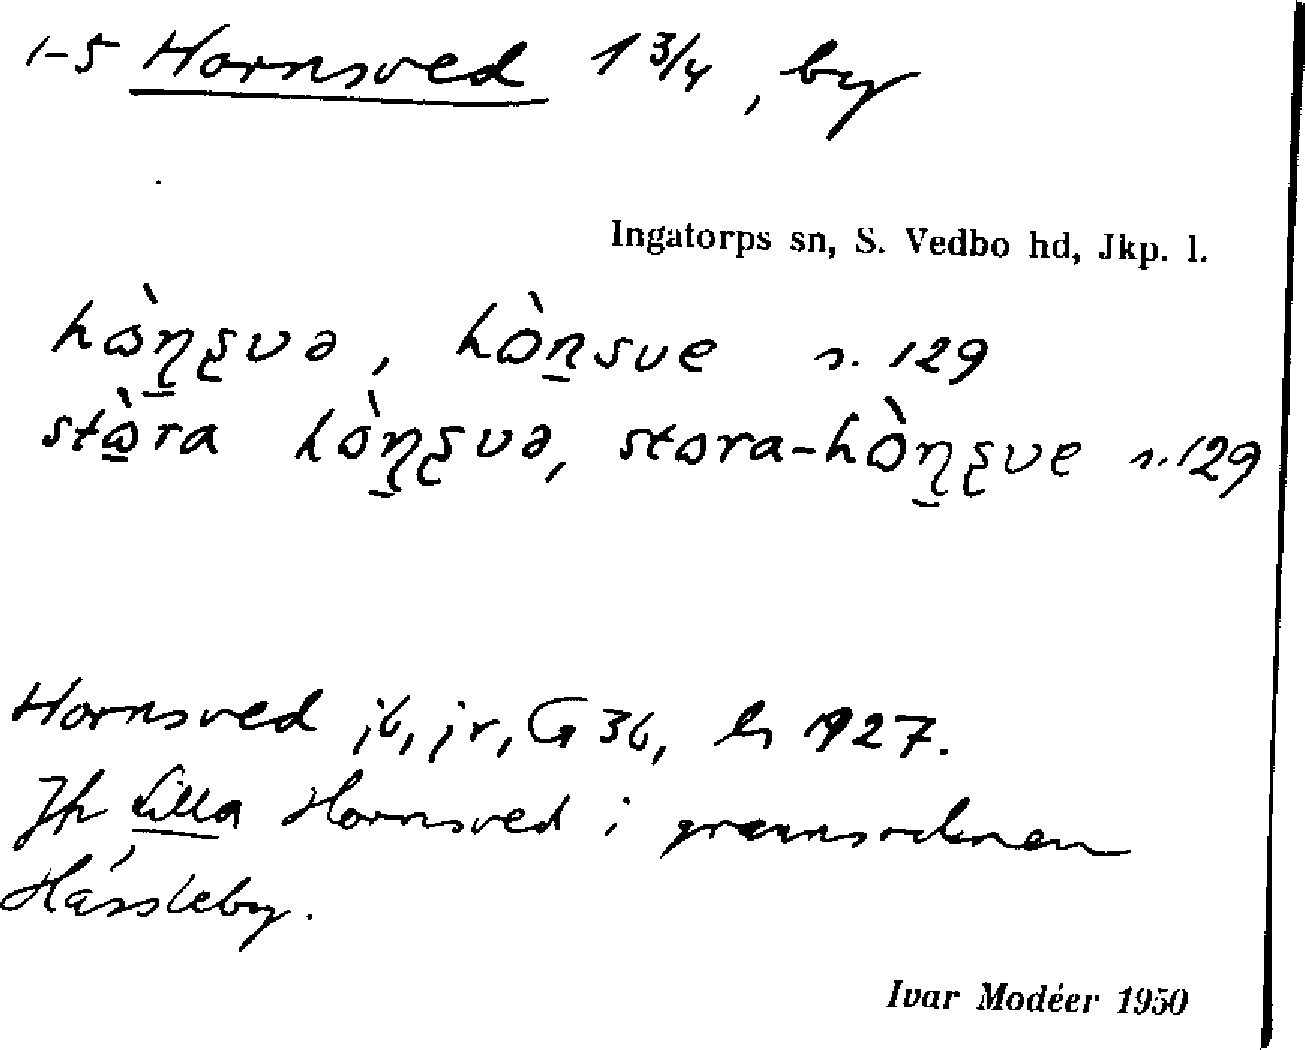 1-5 Hornsved 1 3/4, by
Ingatorps sn, S. Vedbo hd, Jkp. l.
hɷ̀ɳʂvə, hɷ̀nsve s. 129
stɷ̀ra hɷ̀ɳʂvə, stɷra-hɷ̀ɳʂve s. 129
Hornsved jb, jr, G 36, 1927.
Jfr Lilla Hornsved i grannsocknen
Hässleby.
Ivar Modéer 1950